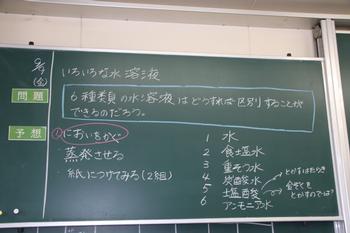 いろいろな水溶液
(金)
問題
6種類の水溶液はどうすれば区別することが
できるのだろう。
予想
①においをかぐ
蒸発させる
紙につけてみる(2組)
1 水
2 食塩水
3 重そう水
4 炭酸水
5 塩酸
6 アンモニア水
とかすはたらき
金ぞくを
とかすのでは?